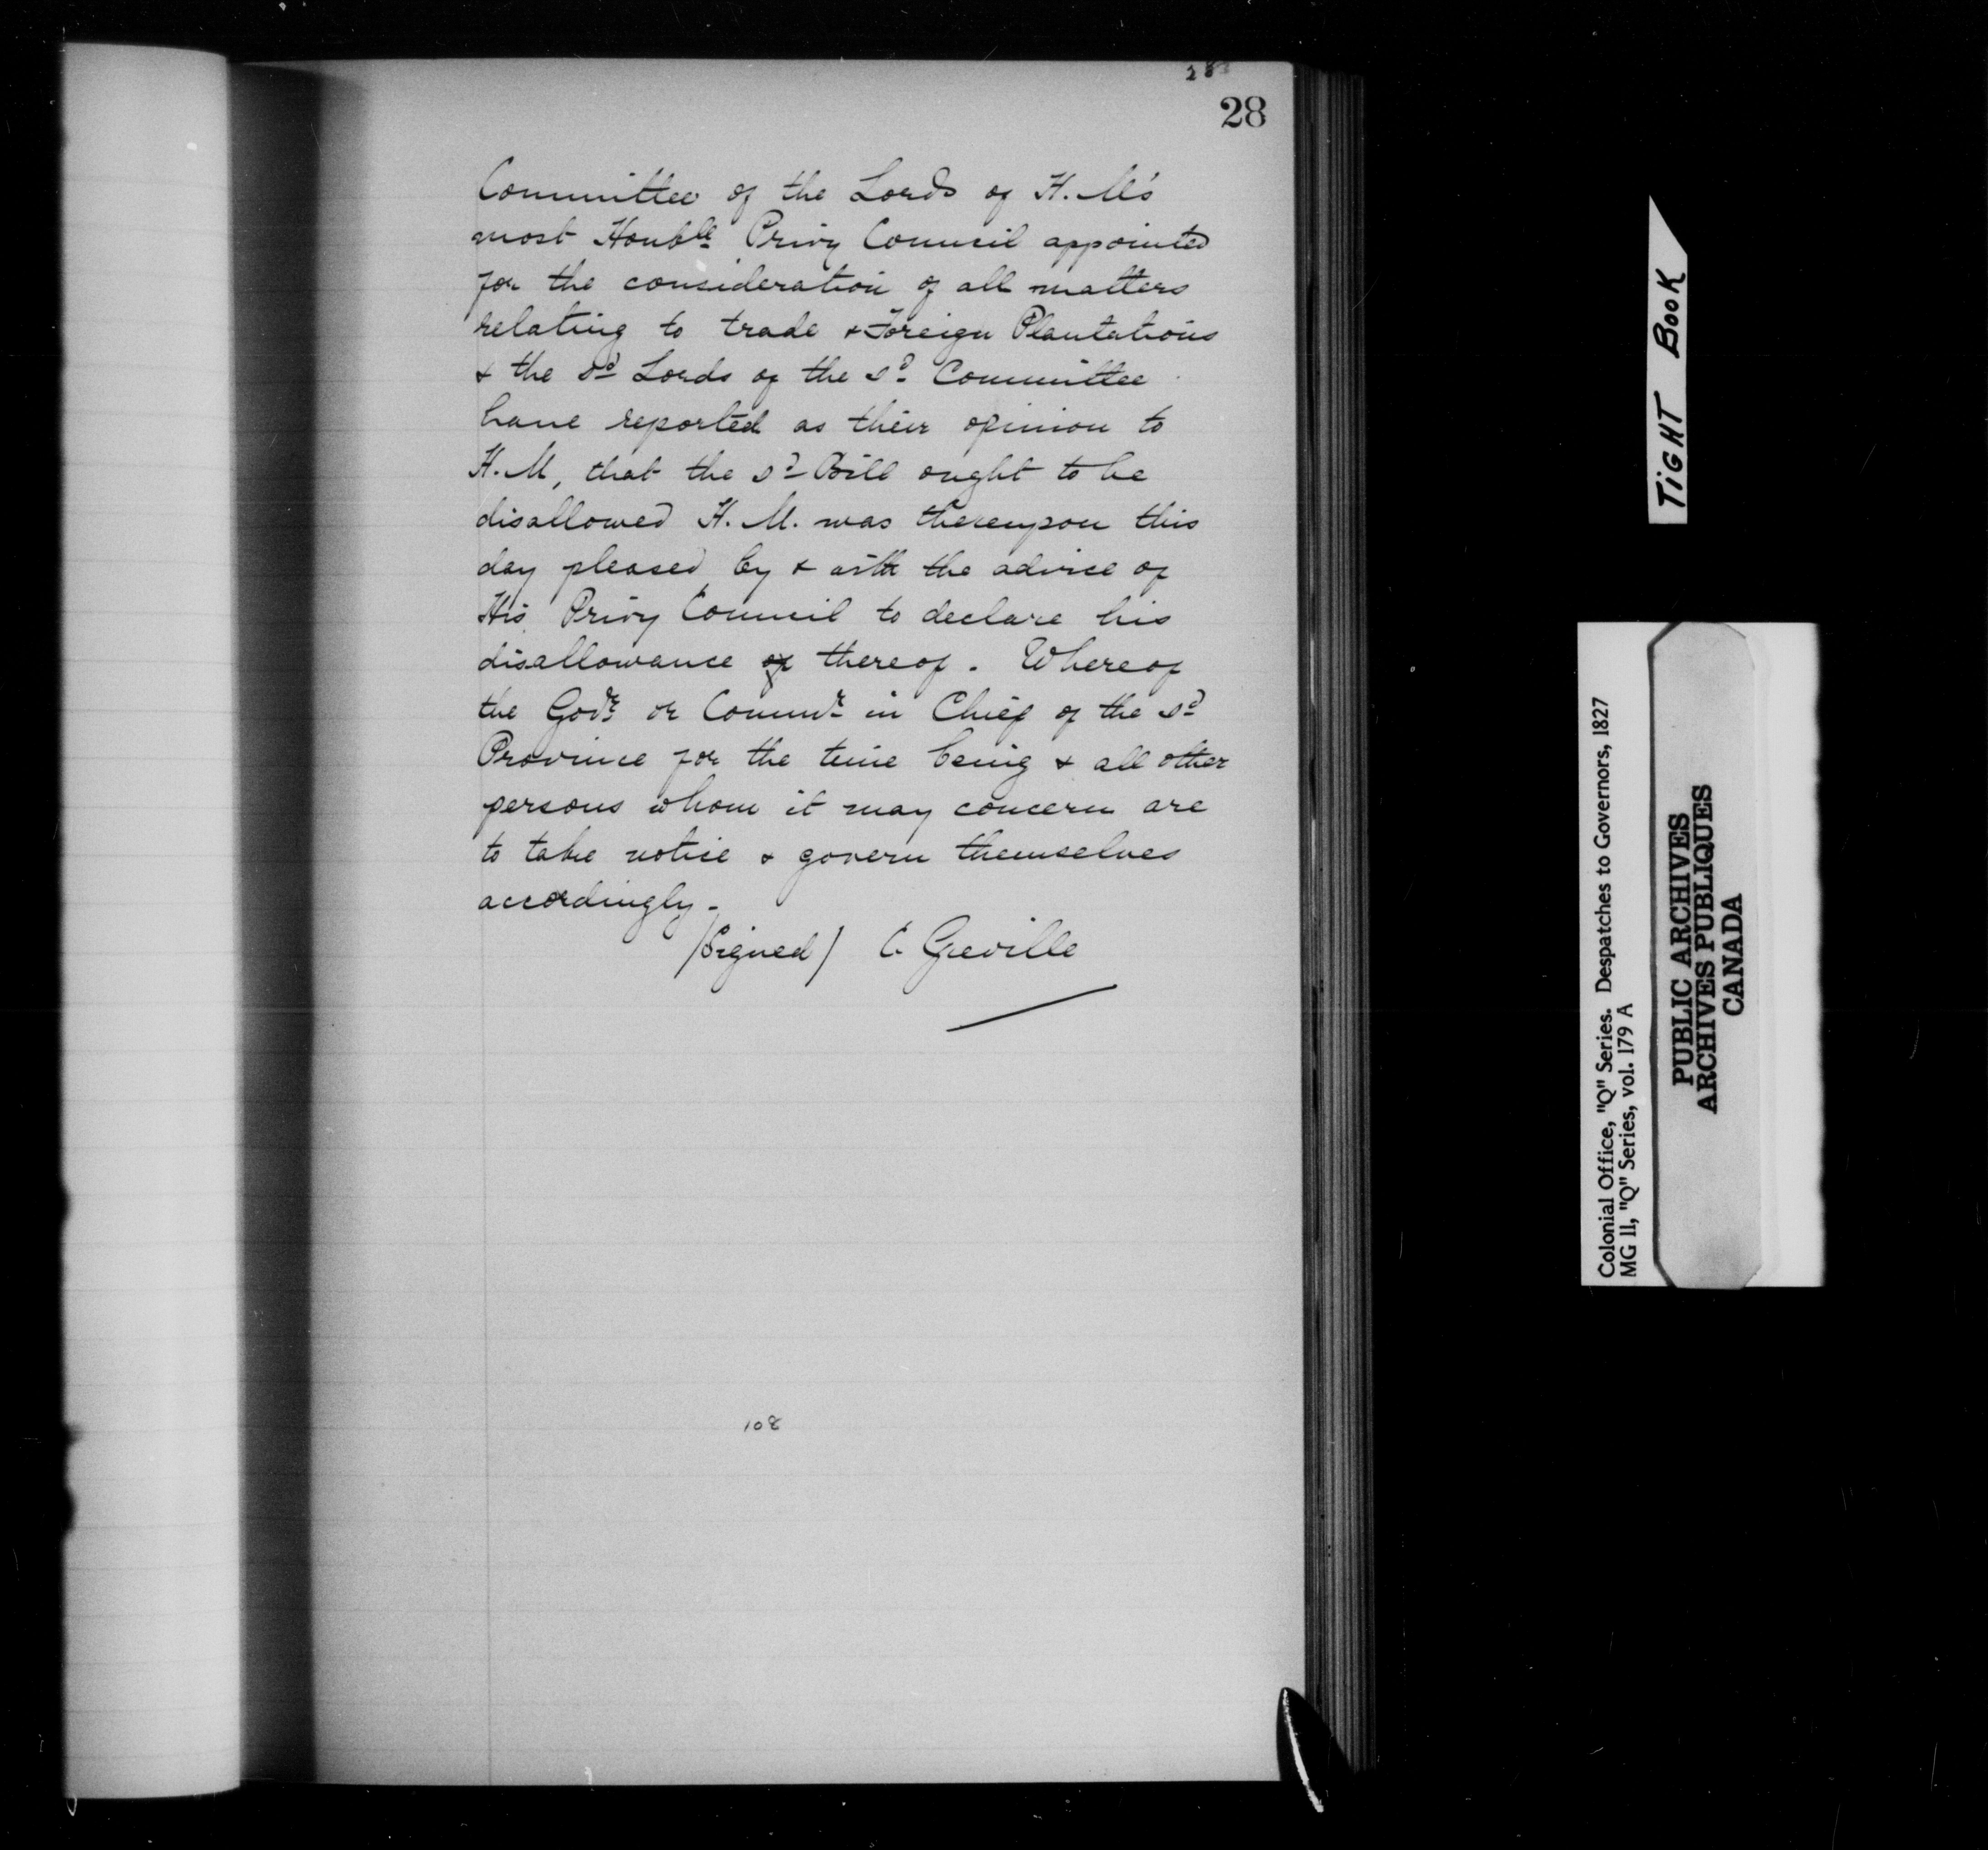 28
Committee of the Lords of H. M's
most Honble Privy Council appointed
for the consideration of all matters
relating to trade & Foreign Plantations
& the sd Lords of the sd Committee
have reported as their opinion to
H. M, that the sd Bill ought to be
disallowed H. M. was thereupon this
day pleased, by & with the advice of
His Privy Council to declare his
disallowance of thereof. Whereof
the Govr or Commdr in Chief of the sd
Province for the time being & all other
persons whom it may concern are
to take notice & govern themselves
accordingly -
/Signed/ C. Greville
108
TIGHT BOOK
Colonial Office, "Q" Series. Despatches to Governors, 1827
MG 11, "Q" Series, vol. 179 A
PUBLIC ARCHIVES
ARCHIVES PUBLIQUES
CANADA